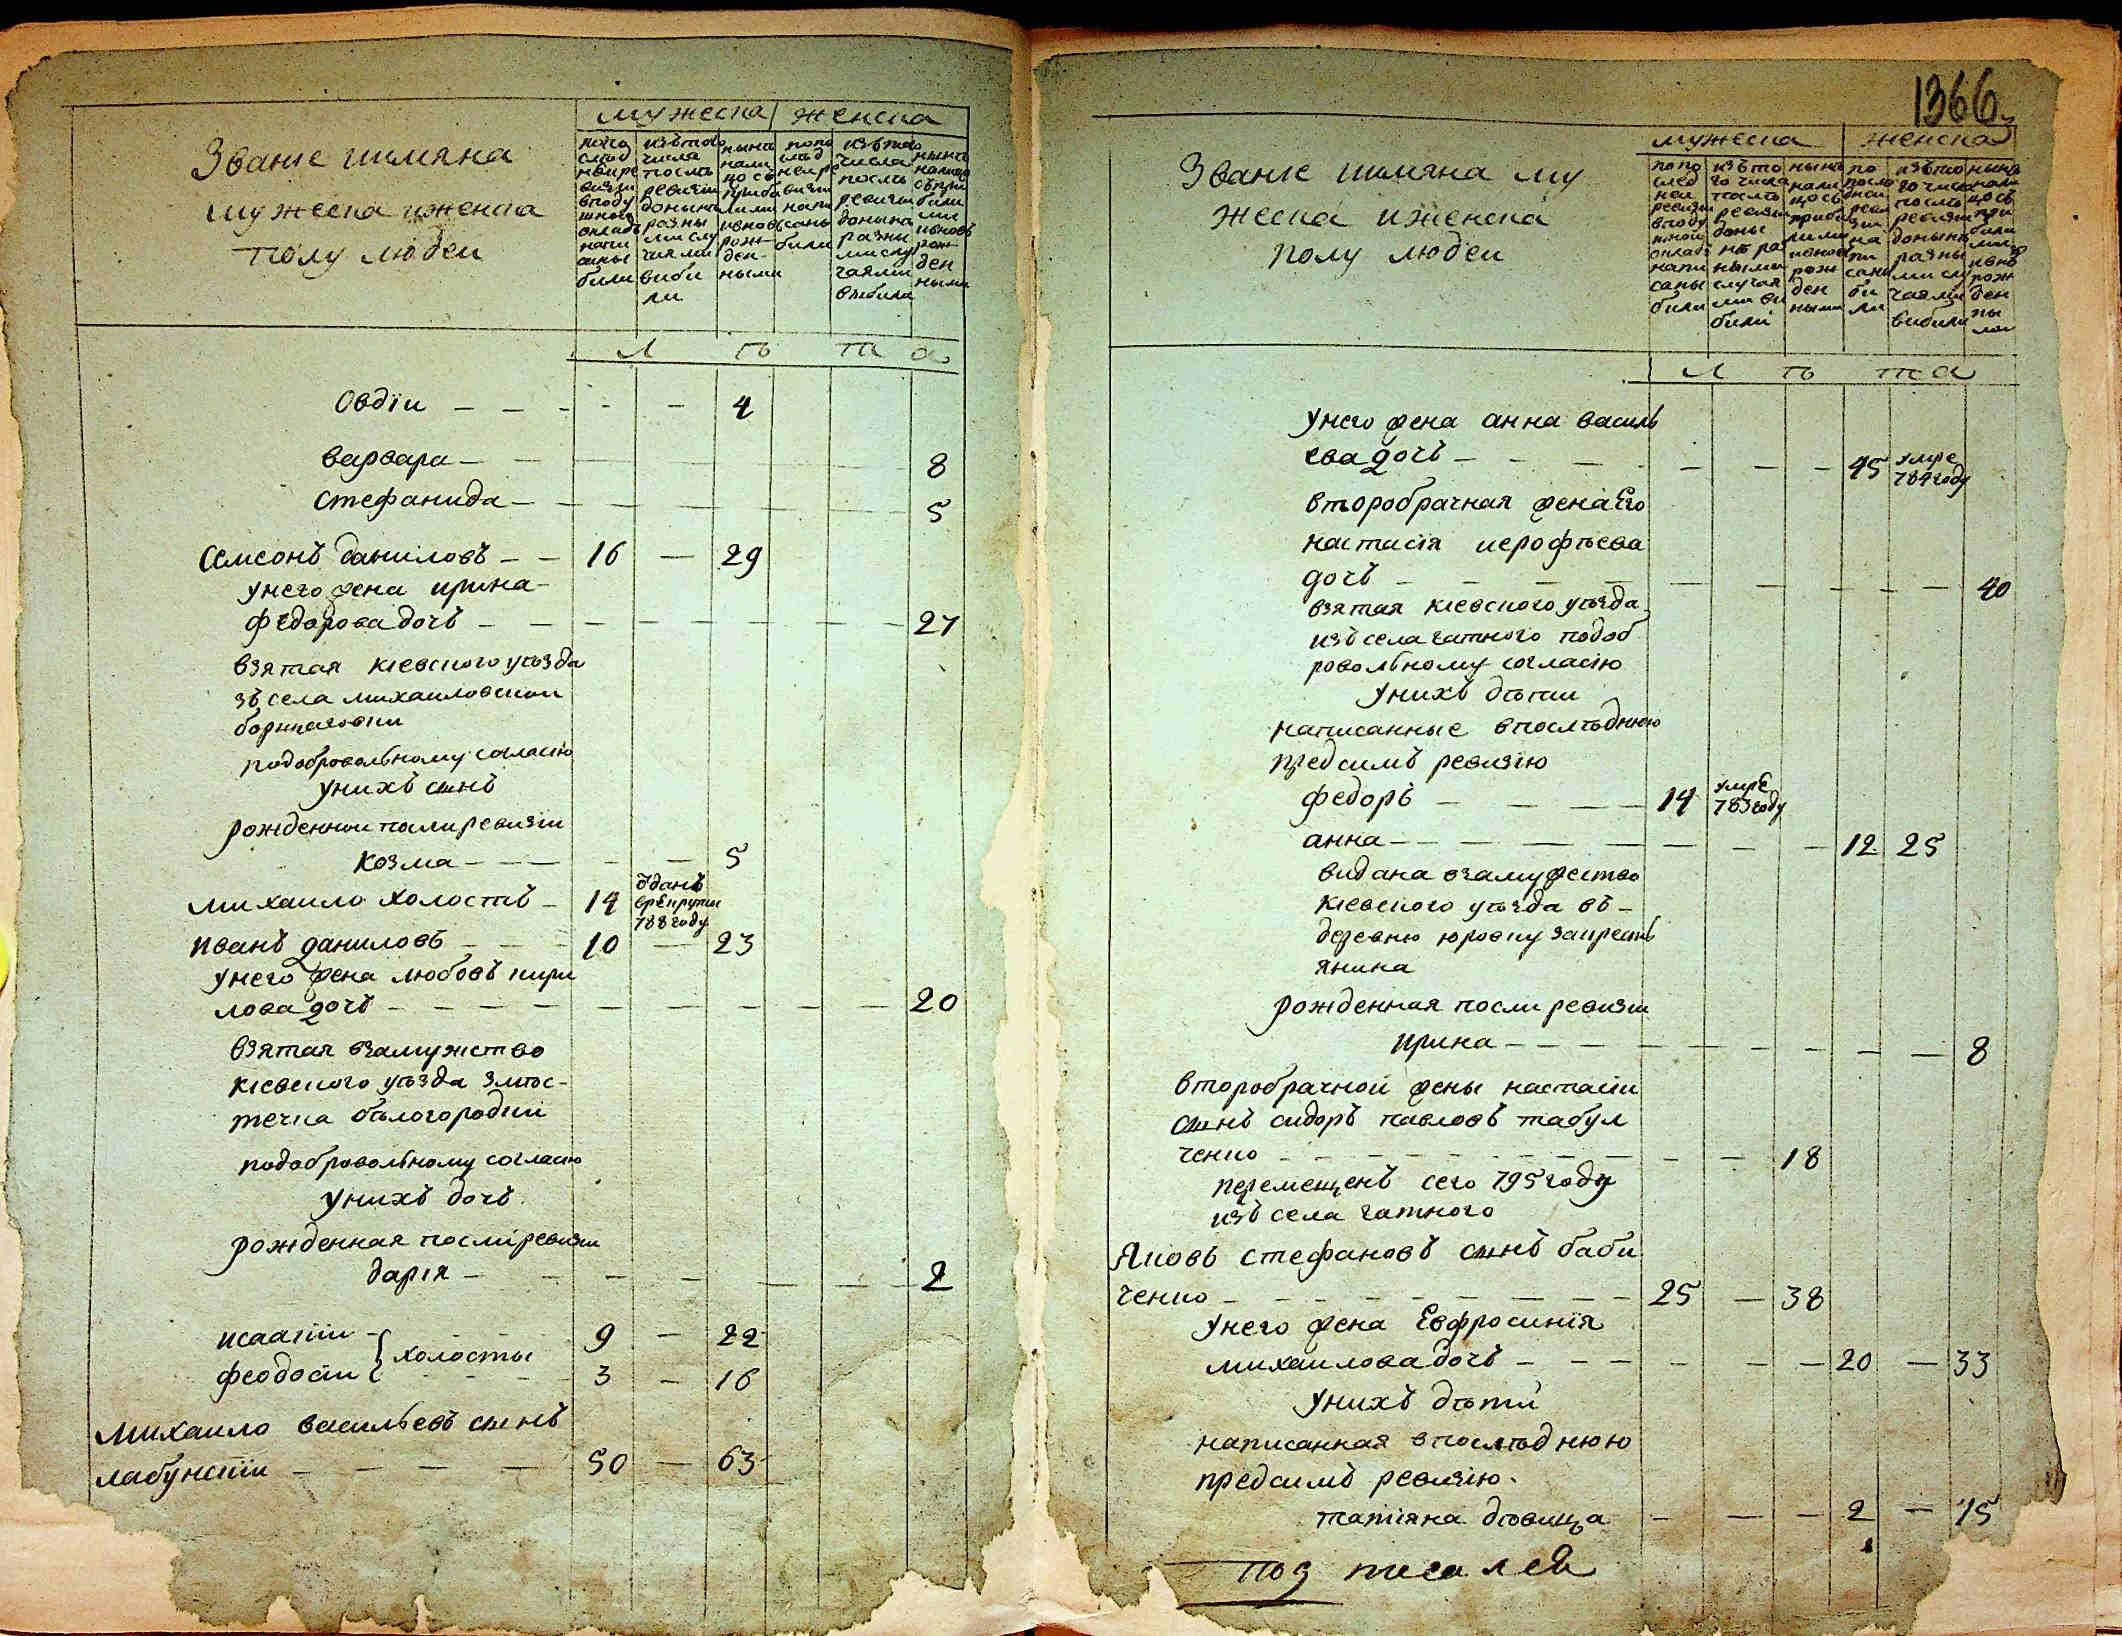 мужеска женска
Званіе иимяна
мужеска иженска
полу людеи
попо
след
неире
визіи
вподу
шном
окладѣ
напи
саны
были
изътого
числа
послѣ
ревизіи
донынѣ
разны
ми слу
чаями
выбы
ли
нынѣ
нали
цо съ
прибы
лыми
ивновь
рож
ден
ными
попо
след
неире
визіи
напи
саны
были
изътого
числа
послѣ
ревизіи
донынѣ
разны
ми слу
чаями
выбыла
нынѣ
налицо
съпри
были
ми
ивновь
рож
ден
ными
л ѣ т а
Овдіи — — — — — 4
варвара — — 8
стефанида — — 5
Самсонъ даниловъ — — 16 — 29
унего жена ирина —
федорова дочь — — 27
взятая кіевского уѣзда
зъ села михаиловскои
борщаговки
подобровольному согласію
унихъ сынъ
рожденнои посли ревизіи
козма — — — — — 5
михаило холостъ — 14 ѿданъ
врекруты
788 году
иванъ даниловъ — — — 10 — 23
унего жена любовъ кири
лова дочь — — — — 20
взятая взамужство
кіевского уѣзда змѣс-
течка бѣлогородки
подобровольному согласію
унихъ дочь
рожденная посли ревизіи
дарія — — — — — 2
исаакіи — 9 — 22
холосты
феодосіи 3 — 16
михаило васильевъ сынъ
лабунскіи — — — — 50 — 63
1366
мужеска женска
Званіе иимяна му
жеска иженска
полу людеи
попо
след
неи
ревизіи
вподу
шнои
окладѣ
напи
саны
были
изъто
го числа
послѣ
ревизіи
доны
нѣ ра
зными
случая
ми вы
были
нынѣ
нали
цо съ
прибы
лыми
ивновь
рож
ден
ными
по
после
днеи
реви
зіи
на
пи
саны
бы
ли
изъто
го числа
послѣ
ревизіи
при
донынѣ
разны
ми слу
чаями
выбыли
нынѣ
нали
цо съ
при
были
ми
ивновь
рож
ден
ны
ми
л ѣ т а
унего жена анна василь
ева дочь — — — — — — — 45 умре
784 году
второбрачная жена Его
настасія иерофѣева
дочь — — — — — — — — — 40
взятая кіевского уѣзда
изъ села гатного подоб
ровольному согласію
унихъ дѣти
написанные впослѣднюю
предсимъ ревизію
федоръ — — — — 14 умре
783 году
анна — — — — — — — — 12 25
видана взамужество
кіевского уѣзда въ —
деревню юровку закресть
янина
рожденная посли ревизіи
ирина — — — — — — — — — 8
второбрачнои жены настасіи
сынъ сидоръ павловъ табул
ченко — — — — — — — — 18
перемещенъ сего 795 году
изъ села гатного
Яковъ стефановъ сынъ баби
ченко — — — — — — — 25 — 38
унего жена Евфросинія
михаилова дочь — — — — — — 20 — 33
унихъ дѣти
написанная впослѣднюю
предсимъ ревизію.
татіяна дѣвица — — — 2 — 15